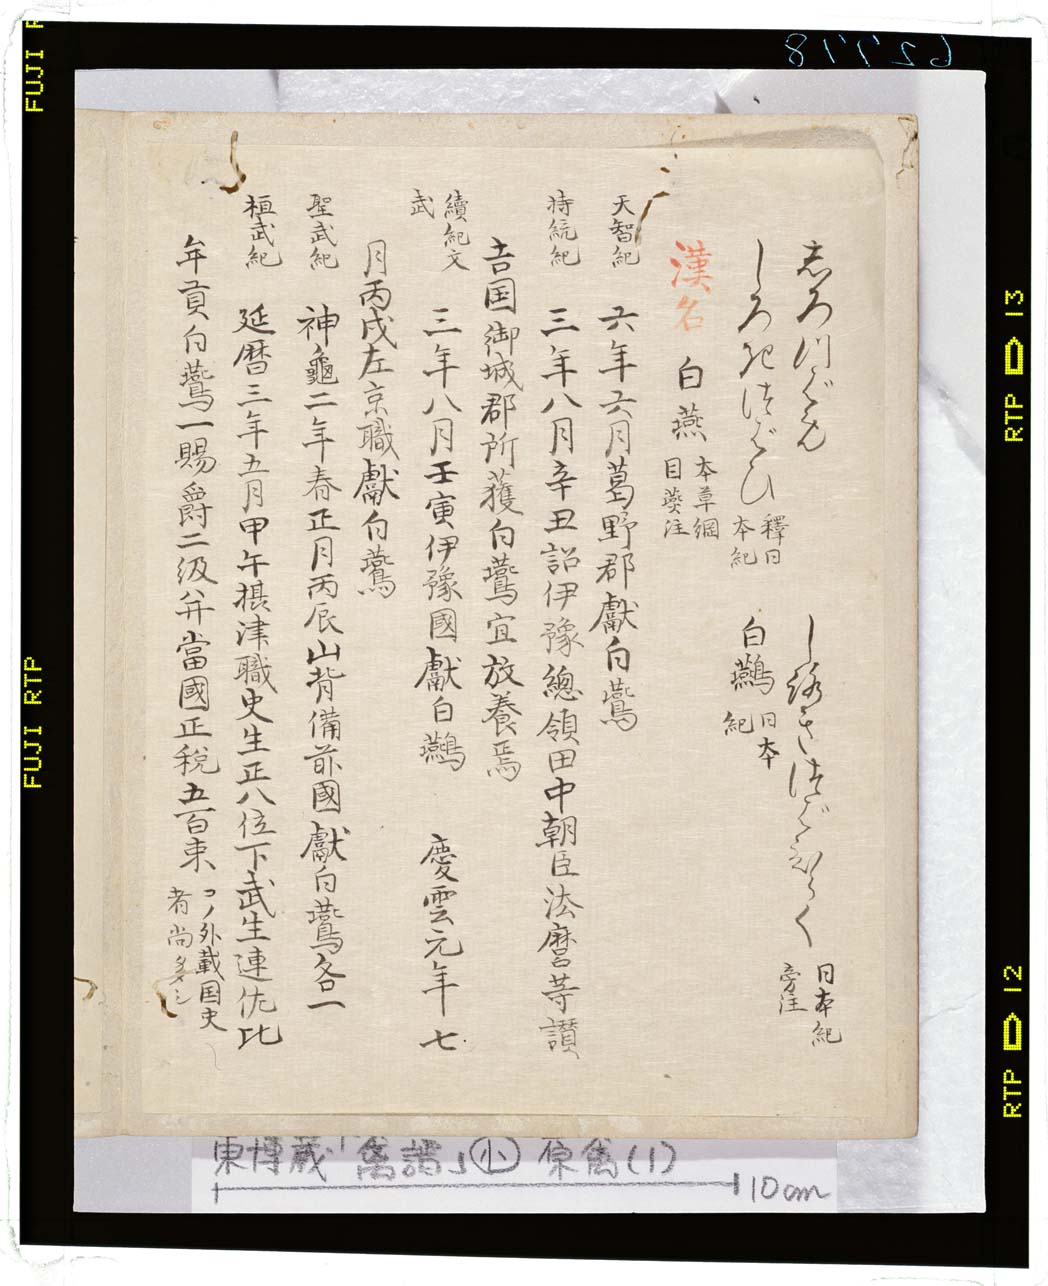 志ろつばめ しろきつば 日本紀
旁注
しろきつばひ 釋日
本紀 白鷰 日本
紀
漢名 白燕 本草綱
目燕注
天智紀 六年六月葛野郡獻白鷰
持統紀 三年八月辛丑詔伊豫總領田中朝臣法麿等讃
吉国御城郡所獲白鷰宜放養焉
續紀文
武 三年八月壬寅伊豫國獻白鷰 慶雲元年七
月丙戌左京職獻白鷰
聖武紀 神龜二年春正月丙辰山背備前國獻白鷰各一
桓武紀 延暦三年五月甲午摂津職史生正八位下武生連佐比
年貢白鷰一賜爵二級并當國正税五百束 コノ外載国史
者尚多シ
東博蔵「禽譜」小 原禽(1)
10cm
62778
FUJI RTP
FUJI R
RTP 13
RTP 12